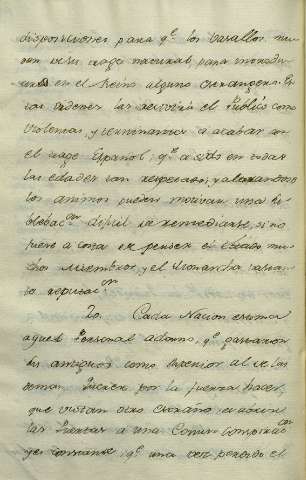 disposiciones, para q.e los Vasallos mu-
den de su trage nacional, para introdu-
cir en el Reino alguno extrangero. Es-
tas ordenes las recivirá el Publico como
violencias, y terminantes a acabar con
el trage Español, q.e a sido en todas
las edades tan respetado, y alterandose
los animos pueden motivar una su-
blebac.on dificil de remediarse, si no
fuese a costa de perder el Estado mu-
chos miembros, y el Monarcha
reputac.on
20. Cada Nacion estima
aquel Personal adorno, q.e gastaron
sus antiguos como superior al de las
demas. Querer por la fuerza hacer,
que vistan otro extraño, es abrir
las Puertas a una Comun conspirac.on
q.e una vez perdido el